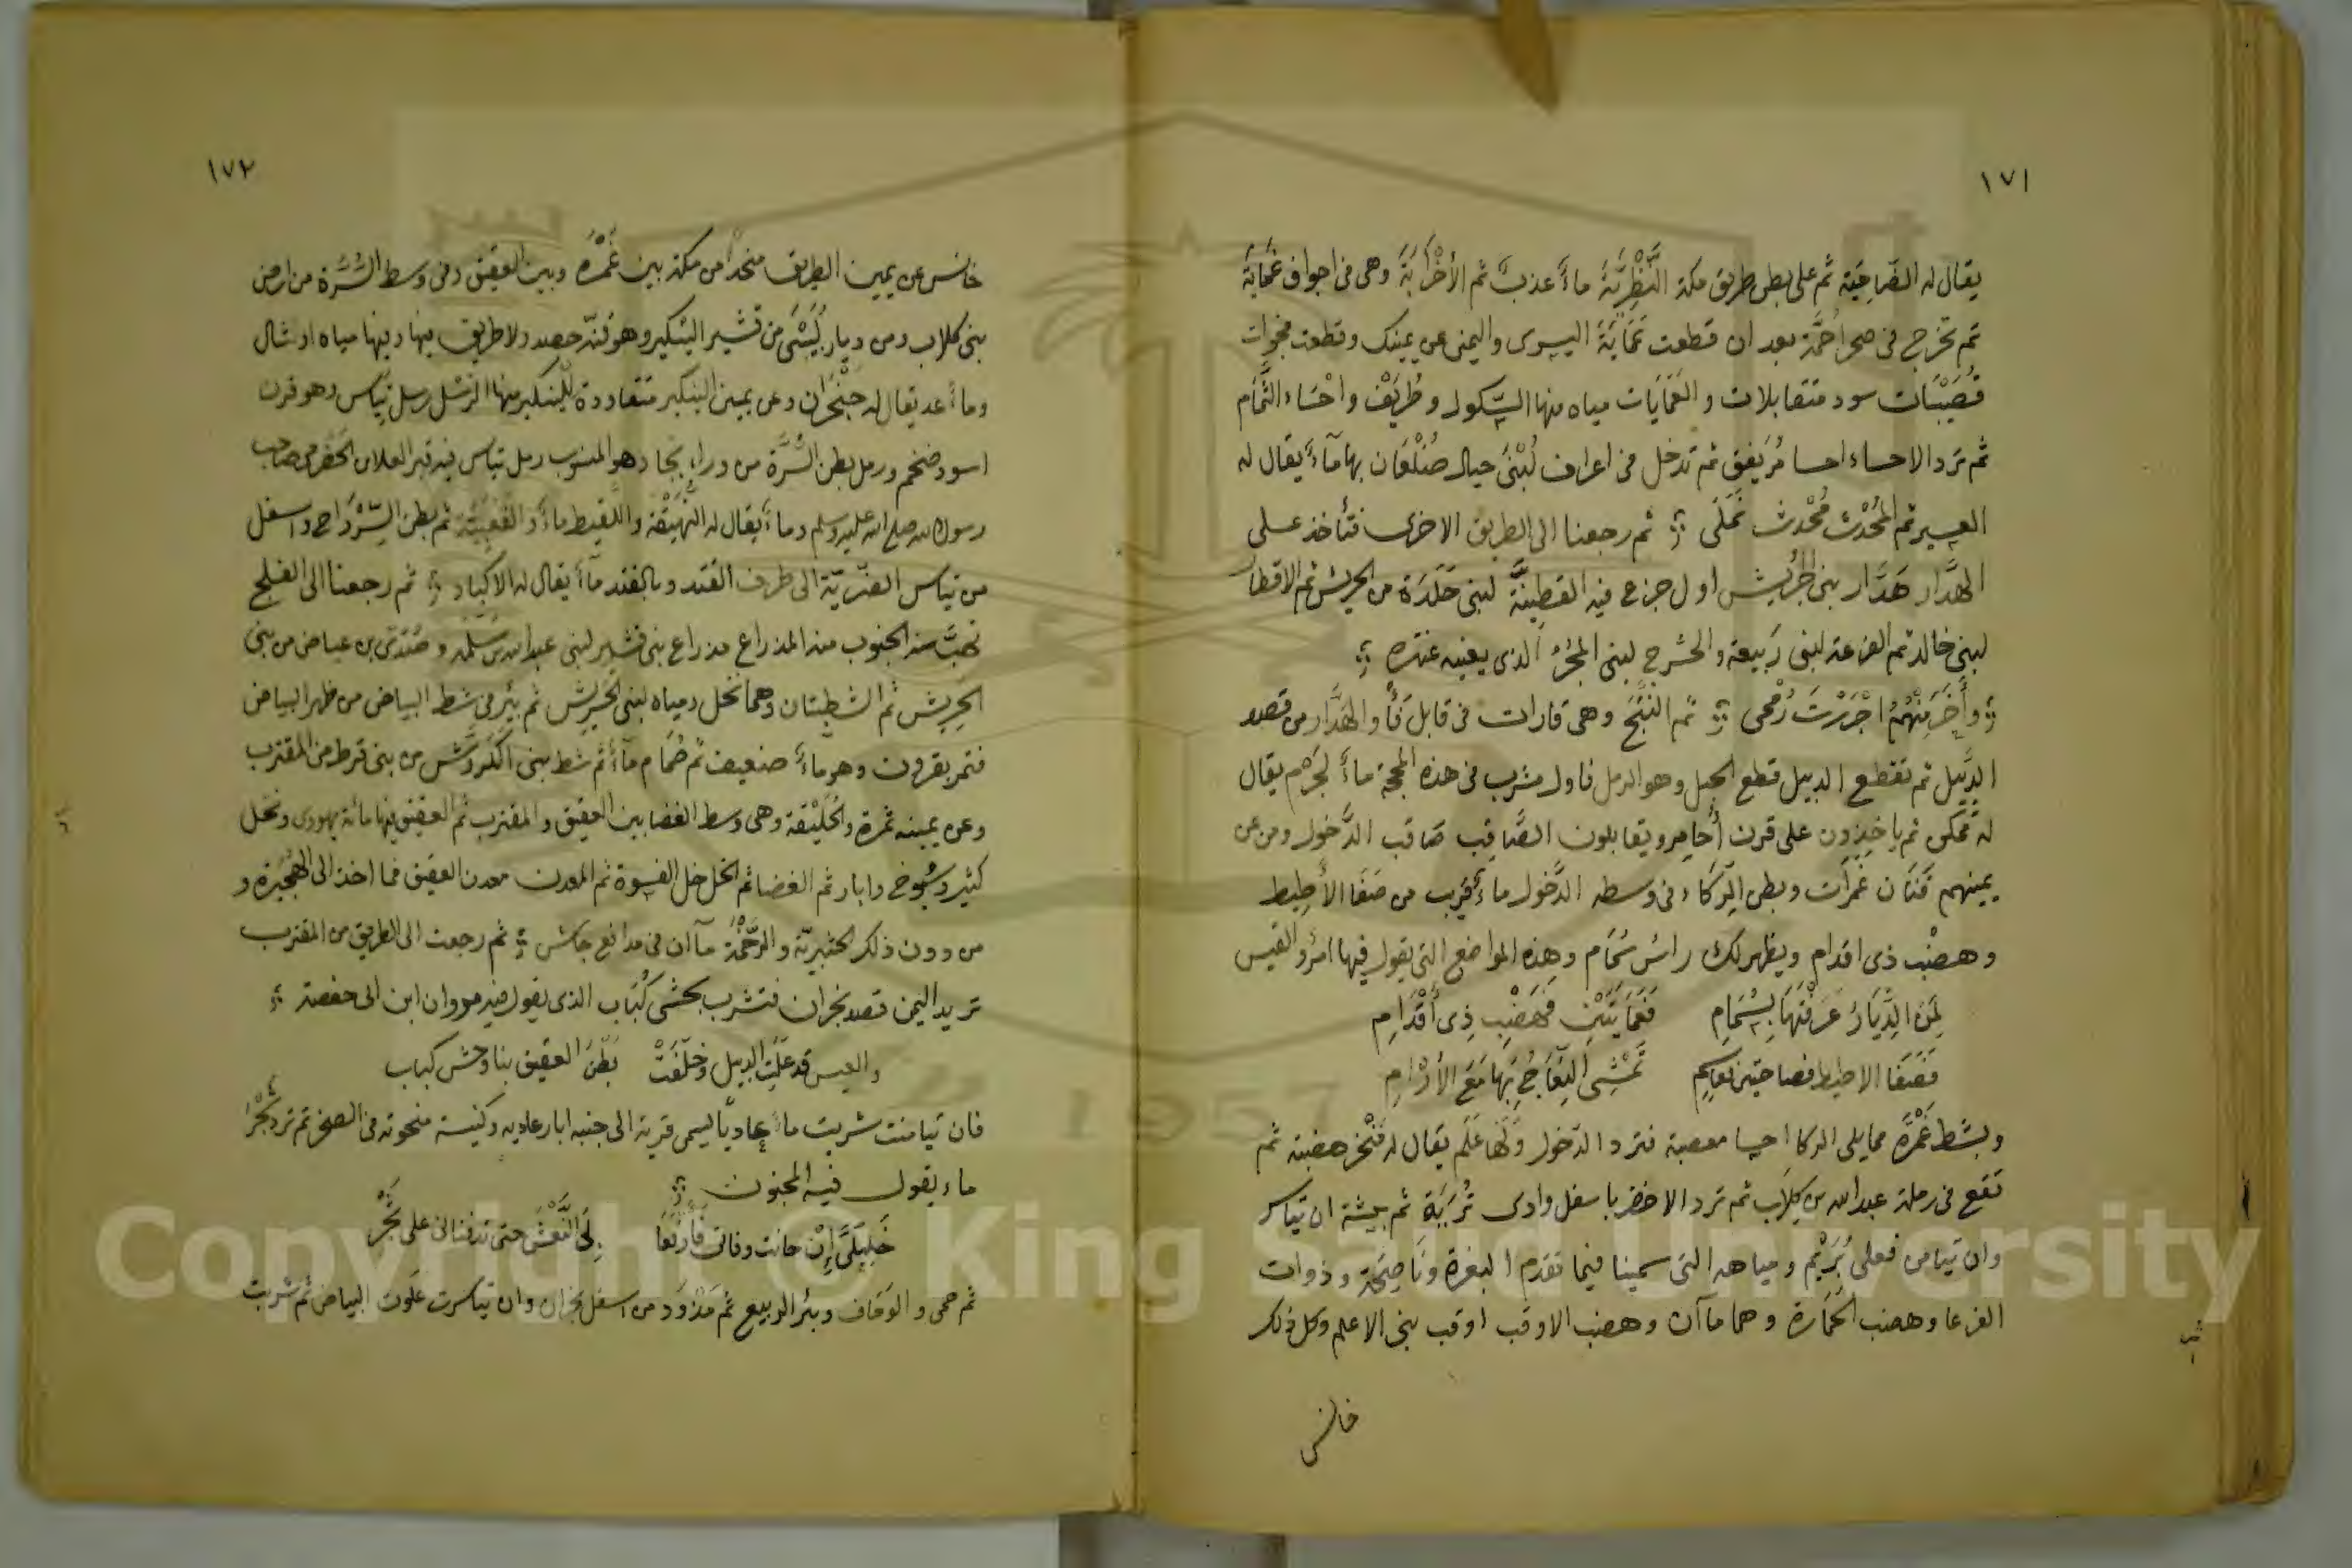 ١٧١
يقال له الضاحية ثم على بطن طريق مكة النَّظِرِيَّةَ ماءً عذبٌ ثم الأَخْرَابَةَ وهى فى اجواف عَمَايَة
ثم تخرج فى صحرا حُمَّة بعد ان قطعت عَمَايَةَ اليسرى واليمنى عن يمينك وقطعت مخرات
قُصَيْبَات سود متقابلات والعَمَايَات مياه منها السّكول وطُرَيْف واحْسَاء الثُّمَام
ثم ترد الاحساء احسا مُرَيفق ثم تدخل فى اعراف لُبْنَىُ حيال صُلْعَان بها ماءً يقال له
العسير ثم المُحْدَث مُحْدث نَمَلَى ثم رجعنا الى الطريق الاخرى فتأخذ على
الهَدَّار هَدَّار بنى الحَرِيش اول جزع فيه القَطِينَّة لبنى خَلَدَة من الحريش ثم الاقطار
لبنى خالد ثم الفرعة لبنى رَبيعة والحشرج لبنى المجُرّ الذى يعنيه عنتره
وأَخَرَ مِنْهُمُ اجْرَرْتَ رُمْحِى ثم النُّبَّخ وهى قارات فى قابل قَفَأ والهَدَّار من قصد
الدَّبيل ثم تقطع الدبيل قطع الحبل وهو الرمل فاول مشرب فى هذه المحجة ماءً لجَرْم يقال
له مُمَكن ثم ياخذون على قرن أُحامِر ويقابلون الصَّاقِب صَاقب الدَّخول ومن عن
يمينهم قَنَان غَمرَات وبطن الرّكاء وفى وسطه الدَّخول ماءً قريب من صَفَا الأَطِيط
وهضْب ذى اقدام ويظهر لك راسُ سُحَام وهذه المواضع التى يقول فيها امرُؤ القيس
لِمَنَ الدِّيَارُ عَرَفْتَهَا بِسُحَامِ فَعَمَايَتَيْنِ فَهَضْبِ ذِى أَقْدَامِ
فَصَفَا الاطيط فصاحتين فعاسِم تَمْشِى النِّعَاجُ بِهَا مَعَ الأَرْامِ
وبشط غَمْرَة مما يلى الركا احسا معصبة فترد الدَّخول وَلَهَا عَلَم يقال له مَنْخر هضبة ثم
تقع فى رملة عبد الله بن كِلَاب ثم ترد الاخضر باسفل وادى تُرَبَة ثم بيشة ان تياسر
وان تيامن فعلى بُرَيْم ومياهه التى سمينا فيما تقدم البغرة ونَاصِحَة وذوات
الفرعا وهضب الحُمَّارة وهما ماآن وهضب الاوقب اوقب بنى الاعلم وكل ذلك
خانس
١٧٢
خانس عن يمين الطريق منحدراً من مكة بين غَمْرَة وبين العقيق وفى وسط السُّرَّة من ارض
بنى كلاب ومن ديار لُبَيْنَى من قشير الينكير وهو قنّة حصد ولا طريق فيها وفيها مياه اوشال
وماءً عد يقال له حَنْجَرَان وعن يمين الينكير متقاودة لِلْينكير منها الرَّسْل رسل تِيَاس وهو قرن
اسود ضخم ورمل بطن السُّرَّة من وراء بُجَاد وهو المنسوب رمل تياس فيه قبر العلاء الحَضرمى صاحب
رسول الله صلى الله عليه وسلم وماءً يقال له النُّهَيْقة واللّقيط ماءً والقُعَيَّة ثم بطن السِّرْدَاح واسفل
من تياس العنزيّة الى طرف القُتد وبالقتد ماءً يقال له الاكباد ثم رجعنا الى الفلج
تهبَّ منه الجنوب منه المذراع مذراع بنى قشير لبنى عبد الله بن سَلَمَة وصُنْدَى بن عياض من بنى
الحَرِيش ثم الشطبتان وهما نخل ومياه لبنى الحَرِيش ثم بئر فى شط البياض من ظهر البياض
فتمر بقرون وهو ماءً ضعيف ثم ضُمَام ماءً ثم شط ببنى الكَرْدَش من بنى قرط من المقترب
وعن يمينه ثمرة والخَلَيْقة وهى وسط الغضا بين العقيق والمقترب ثم العقيق فيها مائة يهودى ونخل
كثير وسُيوخ وابار ثم الغضا ثم الخل خل القسوة ثم المعدن معدن العقيق فما اخذ الى الهُجَيرة و
من دون ذلك الحثيريّة والرَّحْمَة ماآن فى مدافع جاش ثم رجعت الى الطريق من المقترب
تريد اليمن قصد نجران فتشرب بحشى كُبَاب الذى يقول فيه مروان ابن ابى حفصة
والعيس قد علت الدبيل وخلّفت بَطْنَ العقيق بنا وحش كباب
فان تيامنت شربت ماءً عاديًّا يسمى قرية الى جنبه ابار عاديه وكنيسة منحوته فى الصخر ثم ترد ثَجْرًا
ماء يقول فيه المجنون
خَلِيلَىَّ إِنْ حانت وفاتى فَأَرْبَعَا بِىَ النَّعْشَ حتى تدفنانى على ثَجْرُ
ثم حمى والوَقاف وبئر الربيع ثم مَذْوَد من اسفل نجران وان تياسرت علوت البياض ثم شربت